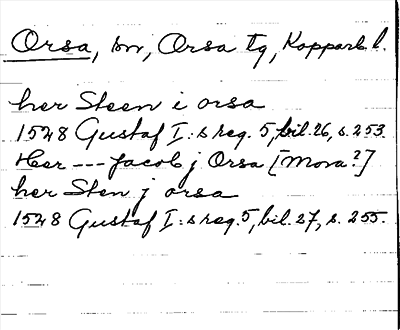 Orsa, sn, Orsa tg, Kopparb l.
her Steen i orsa
1528 Gustaf I:s reg. 5, bil. 26, s. 253.
Her --- Jacob j Orsa [Mora?]
her Sten j orsa
1528 Gustaf I:s reg. 5, bil. 27, s. 255.